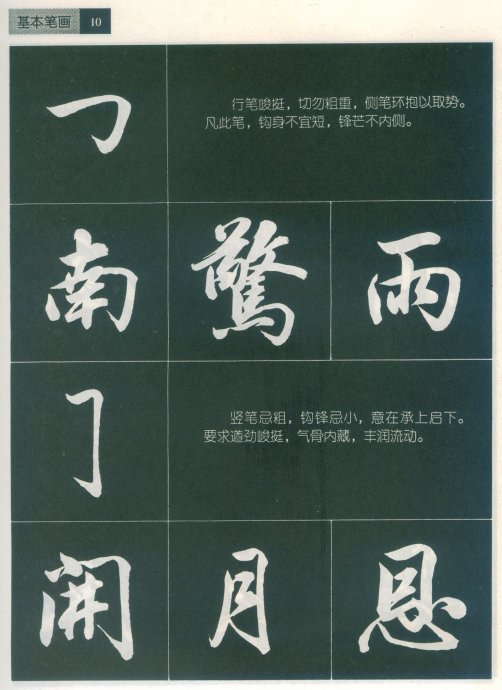 基本笔画 10
行笔峻挺，切勿粗重，侧笔环抱以取势。
凡此笔，钩身不宜短，锋芒不内侧。
南 驚 雨
竖笔忌粗，钩锋忌小，意在承上启下。
要求遒劲峻挺，气骨内藏，丰润流动。
開 月 恩